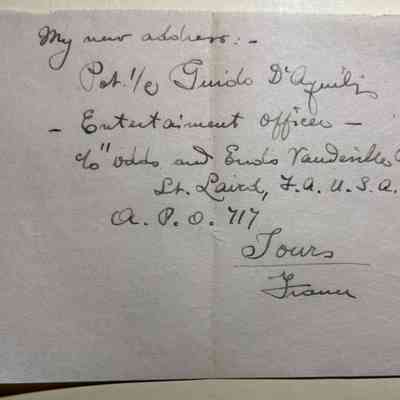 My new address:-
Pvt. 1/c Guido D'Aquili
- Entertaiment officer -
c/o "Odds and Ends Vaudeville
Lt. Laird, F.A. U.S.A.
A.P.O. 717
Tours
France